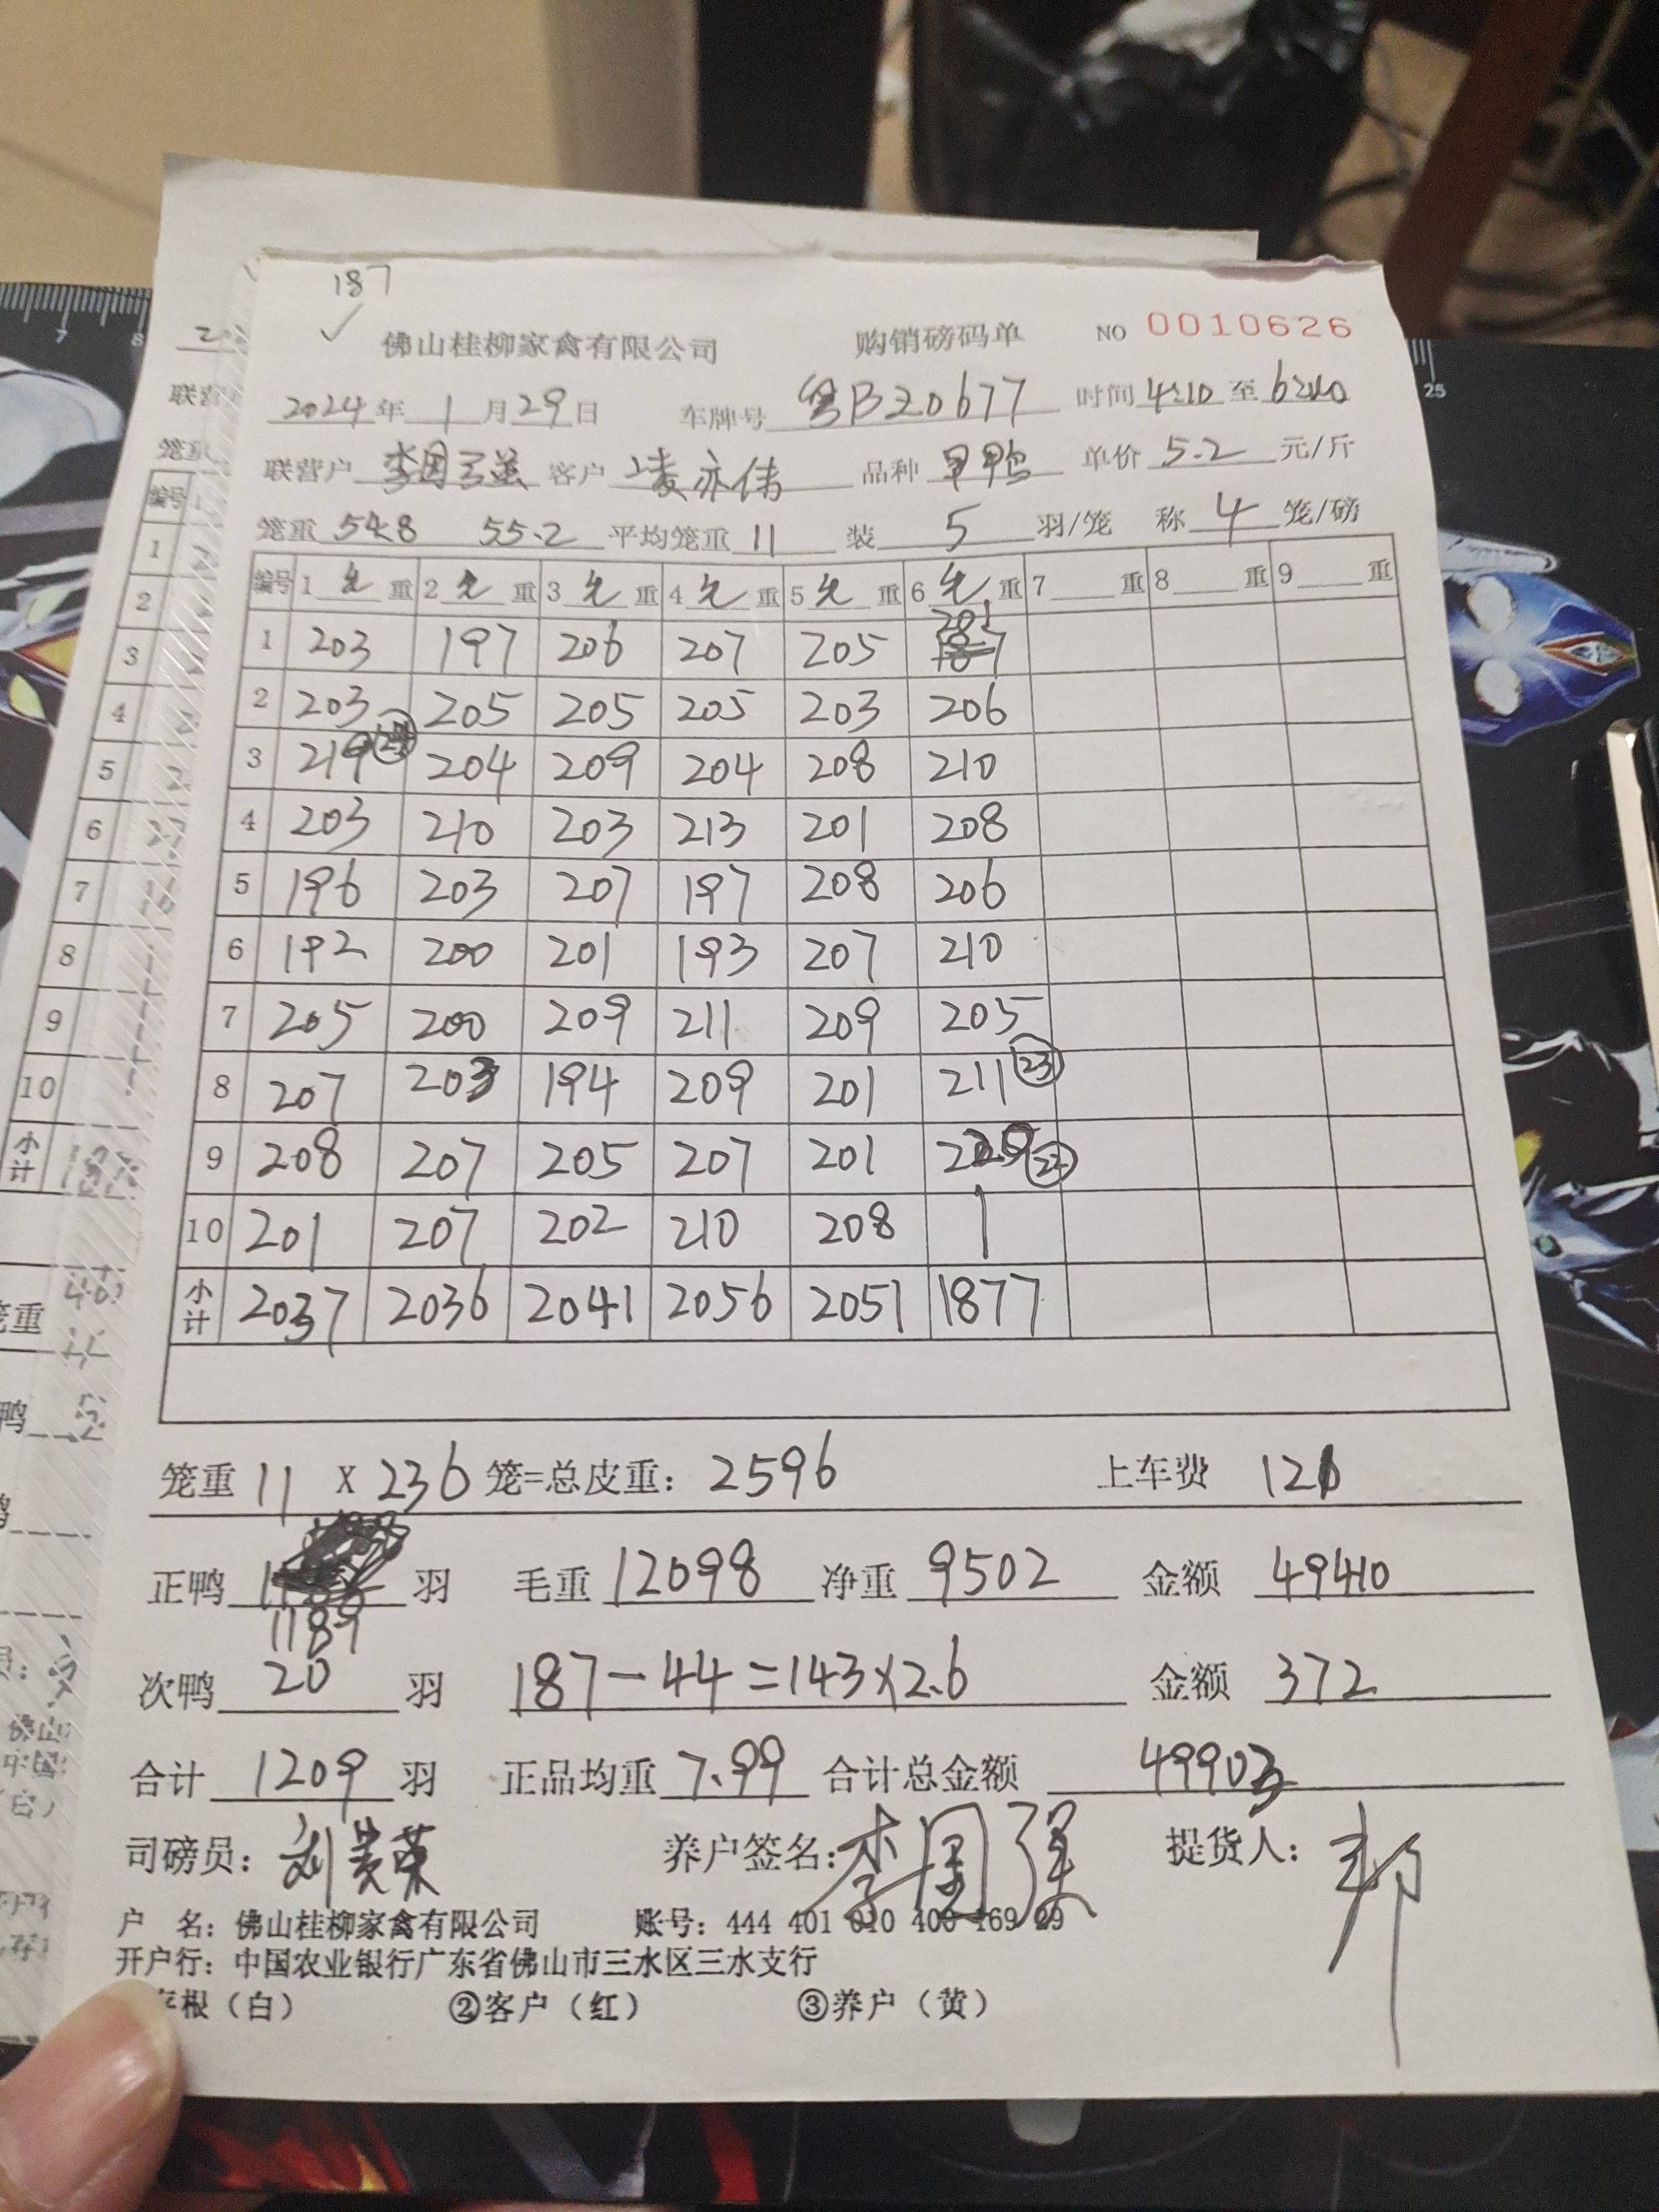 187
佛山桂柳家禽有限公司 购销磅码单 NO 0010626
2024年 1月29日 车牌号 粤B20677 时间 4:10 至 6:40
联营户 李国强 客户 凌亦伟 品种 单价 5.2 元/斤
笼重 54.8 55.2 平均笼重 11 装 5 羽/笼 称 4 笼/磅
编号 1 重 2 重 3 重 4 重 5 重 6 重 7 重 8 重 9 重
1 203 197 206 207 205 201
2 203 205 205 205 203 206
3 219 204 209 204 208 210
4 203 210 203 213 201 208
5 196 203 207 197 208 206
6 192 200 201 193 207 210
7 205 200 209 211 209 205
8 207 203 194 209 201 211 23
9 208 207 205 207 201
10 201 207 202 210 208
小计 2037 2036 2041 2056 2051 1877
笼重 11 X 236 笼=总皮重: 2596 上车费 121
正鸭 1189 羽 毛重 12098 净重 9502 金额 49410
次鸭 20 羽 187-44=143×2.6 金额 372
合计 1209 羽 正品均重 7.99 合计总金额 49903
司磅员: 刘贵荣 养户签名: 李国强 提货人:
户 名: 佛山桂柳家禽有限公司 账号: 444 401 010 400 169
开户行: 中国农业银行广东省佛山市三水区三水支行
存根（白） ②客户（红） ③养户（黄）